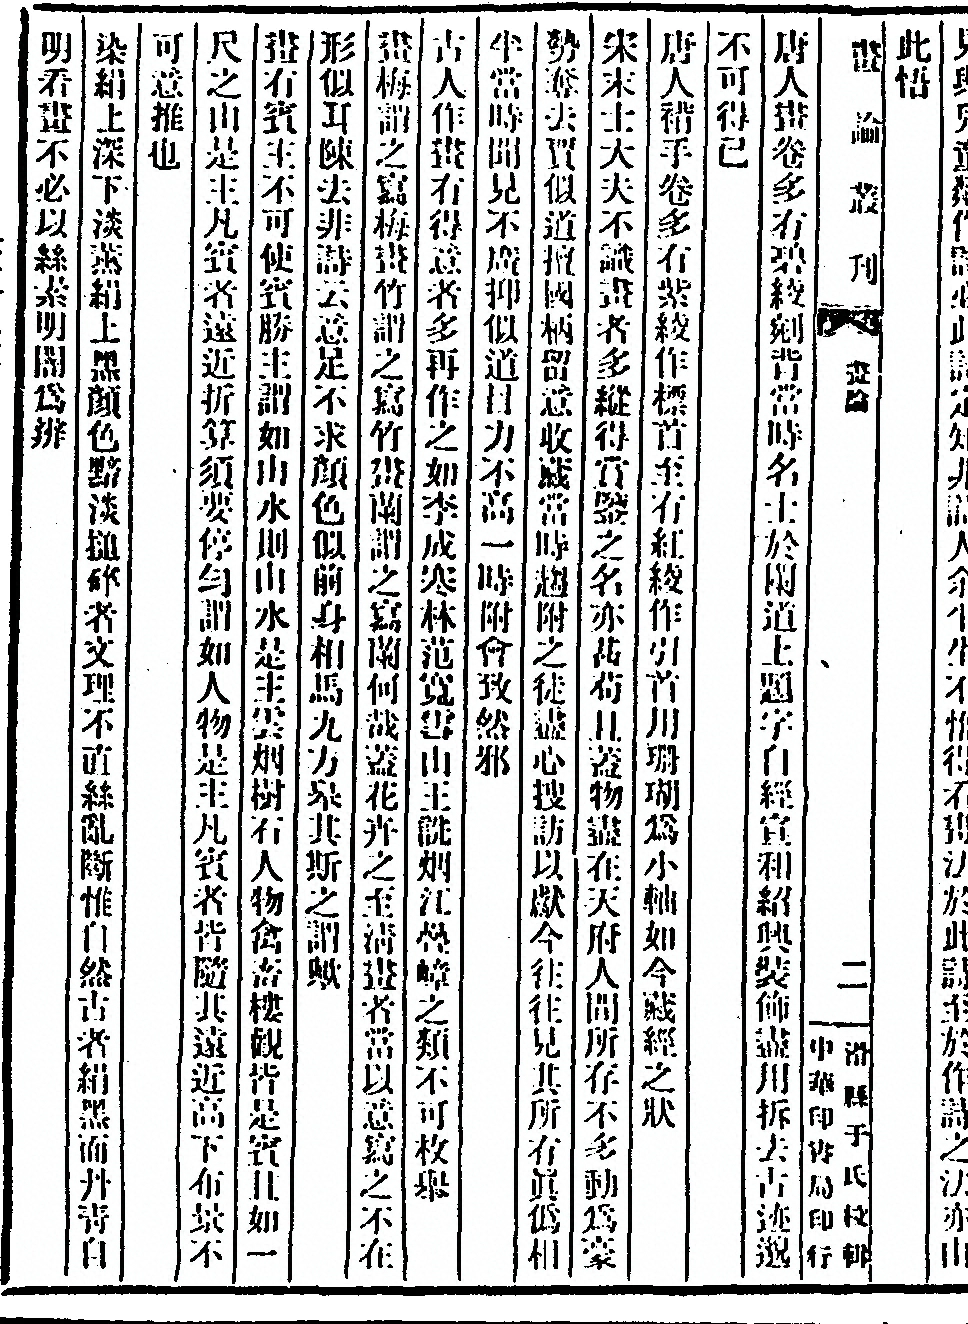 見與兒童鄰作詩必此詩定知非詩人余平生不惟得看畫法於此詩至於作詩之法亦由
此悟
畫論叢刊 畫論 二 滄縣于氏校輯 中華印書局印行
唐人畫卷多有碧綾剜背當時名士於闌道上題字自經宣和紹興裝飾盡用拆去古迹邈
不可得已
唐人褙手卷多有紫綾作標首至有紅綾作引首用珊瑚爲小軸如今藏經之狀
宋末士大夫不識畫者多縱得賞鑒之名亦甚苟且蓋物盡在天府人間所存不多動爲豪
勢奪去賈似道擅國柄留意收藏當時趨附之徒盡心搜訪以獻今往往見其所有眞僞相
半當時聞見不廣抑似道目力不高一時附會致然邪
古人作畫有得意者多再作之如李成寒林范寬雪山王詵烟江疊嶂之類不可枚舉
畫梅謂之寫梅畫竹謂之寫竹畫蘭謂之寫蘭何哉蓋花卉之至清畫者當以意寫之不在
形似耳陳去非詩云意足不求顏色似前身相馬九方臯其斯之謂歟
畫有賓主不可使賓勝主謂如山水則山水是主雲烟樹石人物禽畜樓觀皆是賓且如一
尺之山是主凡賓者遠近折算須要停勻謂如人物是主凡賓者皆隨其遠近高下布景不
可意推也
染絹上深下淡蒸絹上黑顏色黯淡搥碎者文理不直絲亂斷惟自然古者絹黑而丹青自
明看畫不必以絲素明闇爲辨